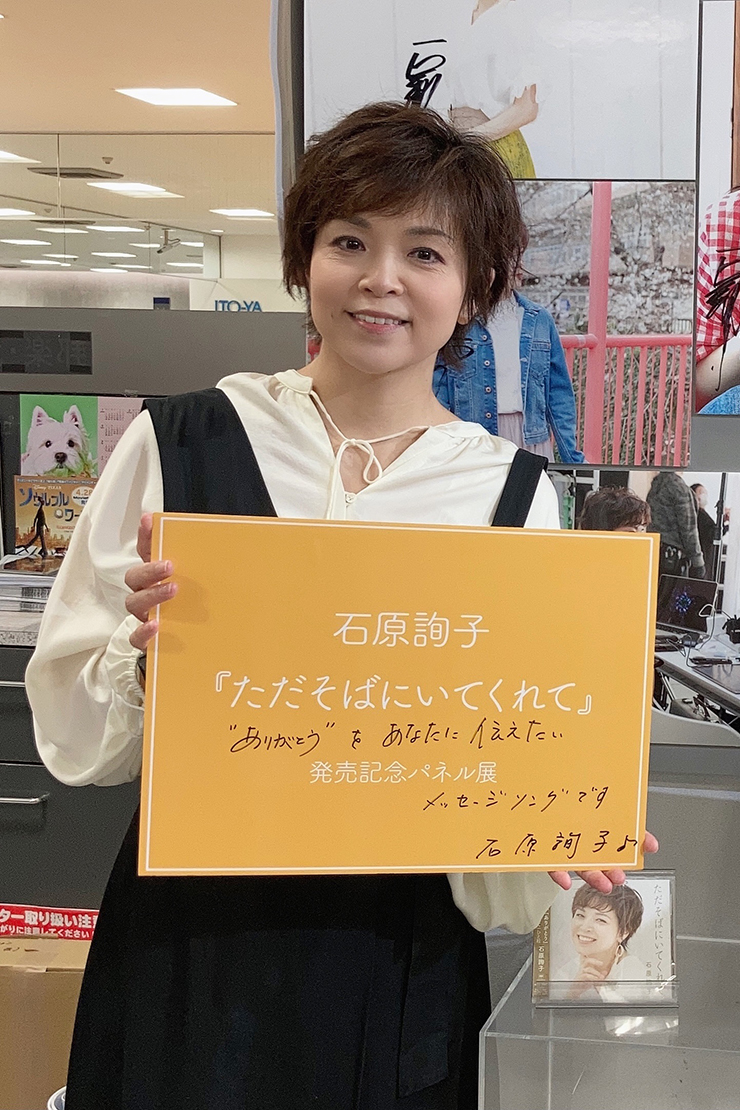 ITO-YA
石原詢子
『ただそばにいてくれて』
"ありがとう"を あなたに 伝えたい
発売記念パネル展
メッセージソングです
石原詢子♪
ソウルフル・ワールド
ター取り扱い注意
がりに注意してください
ただそばにいてくれて
石原詢子